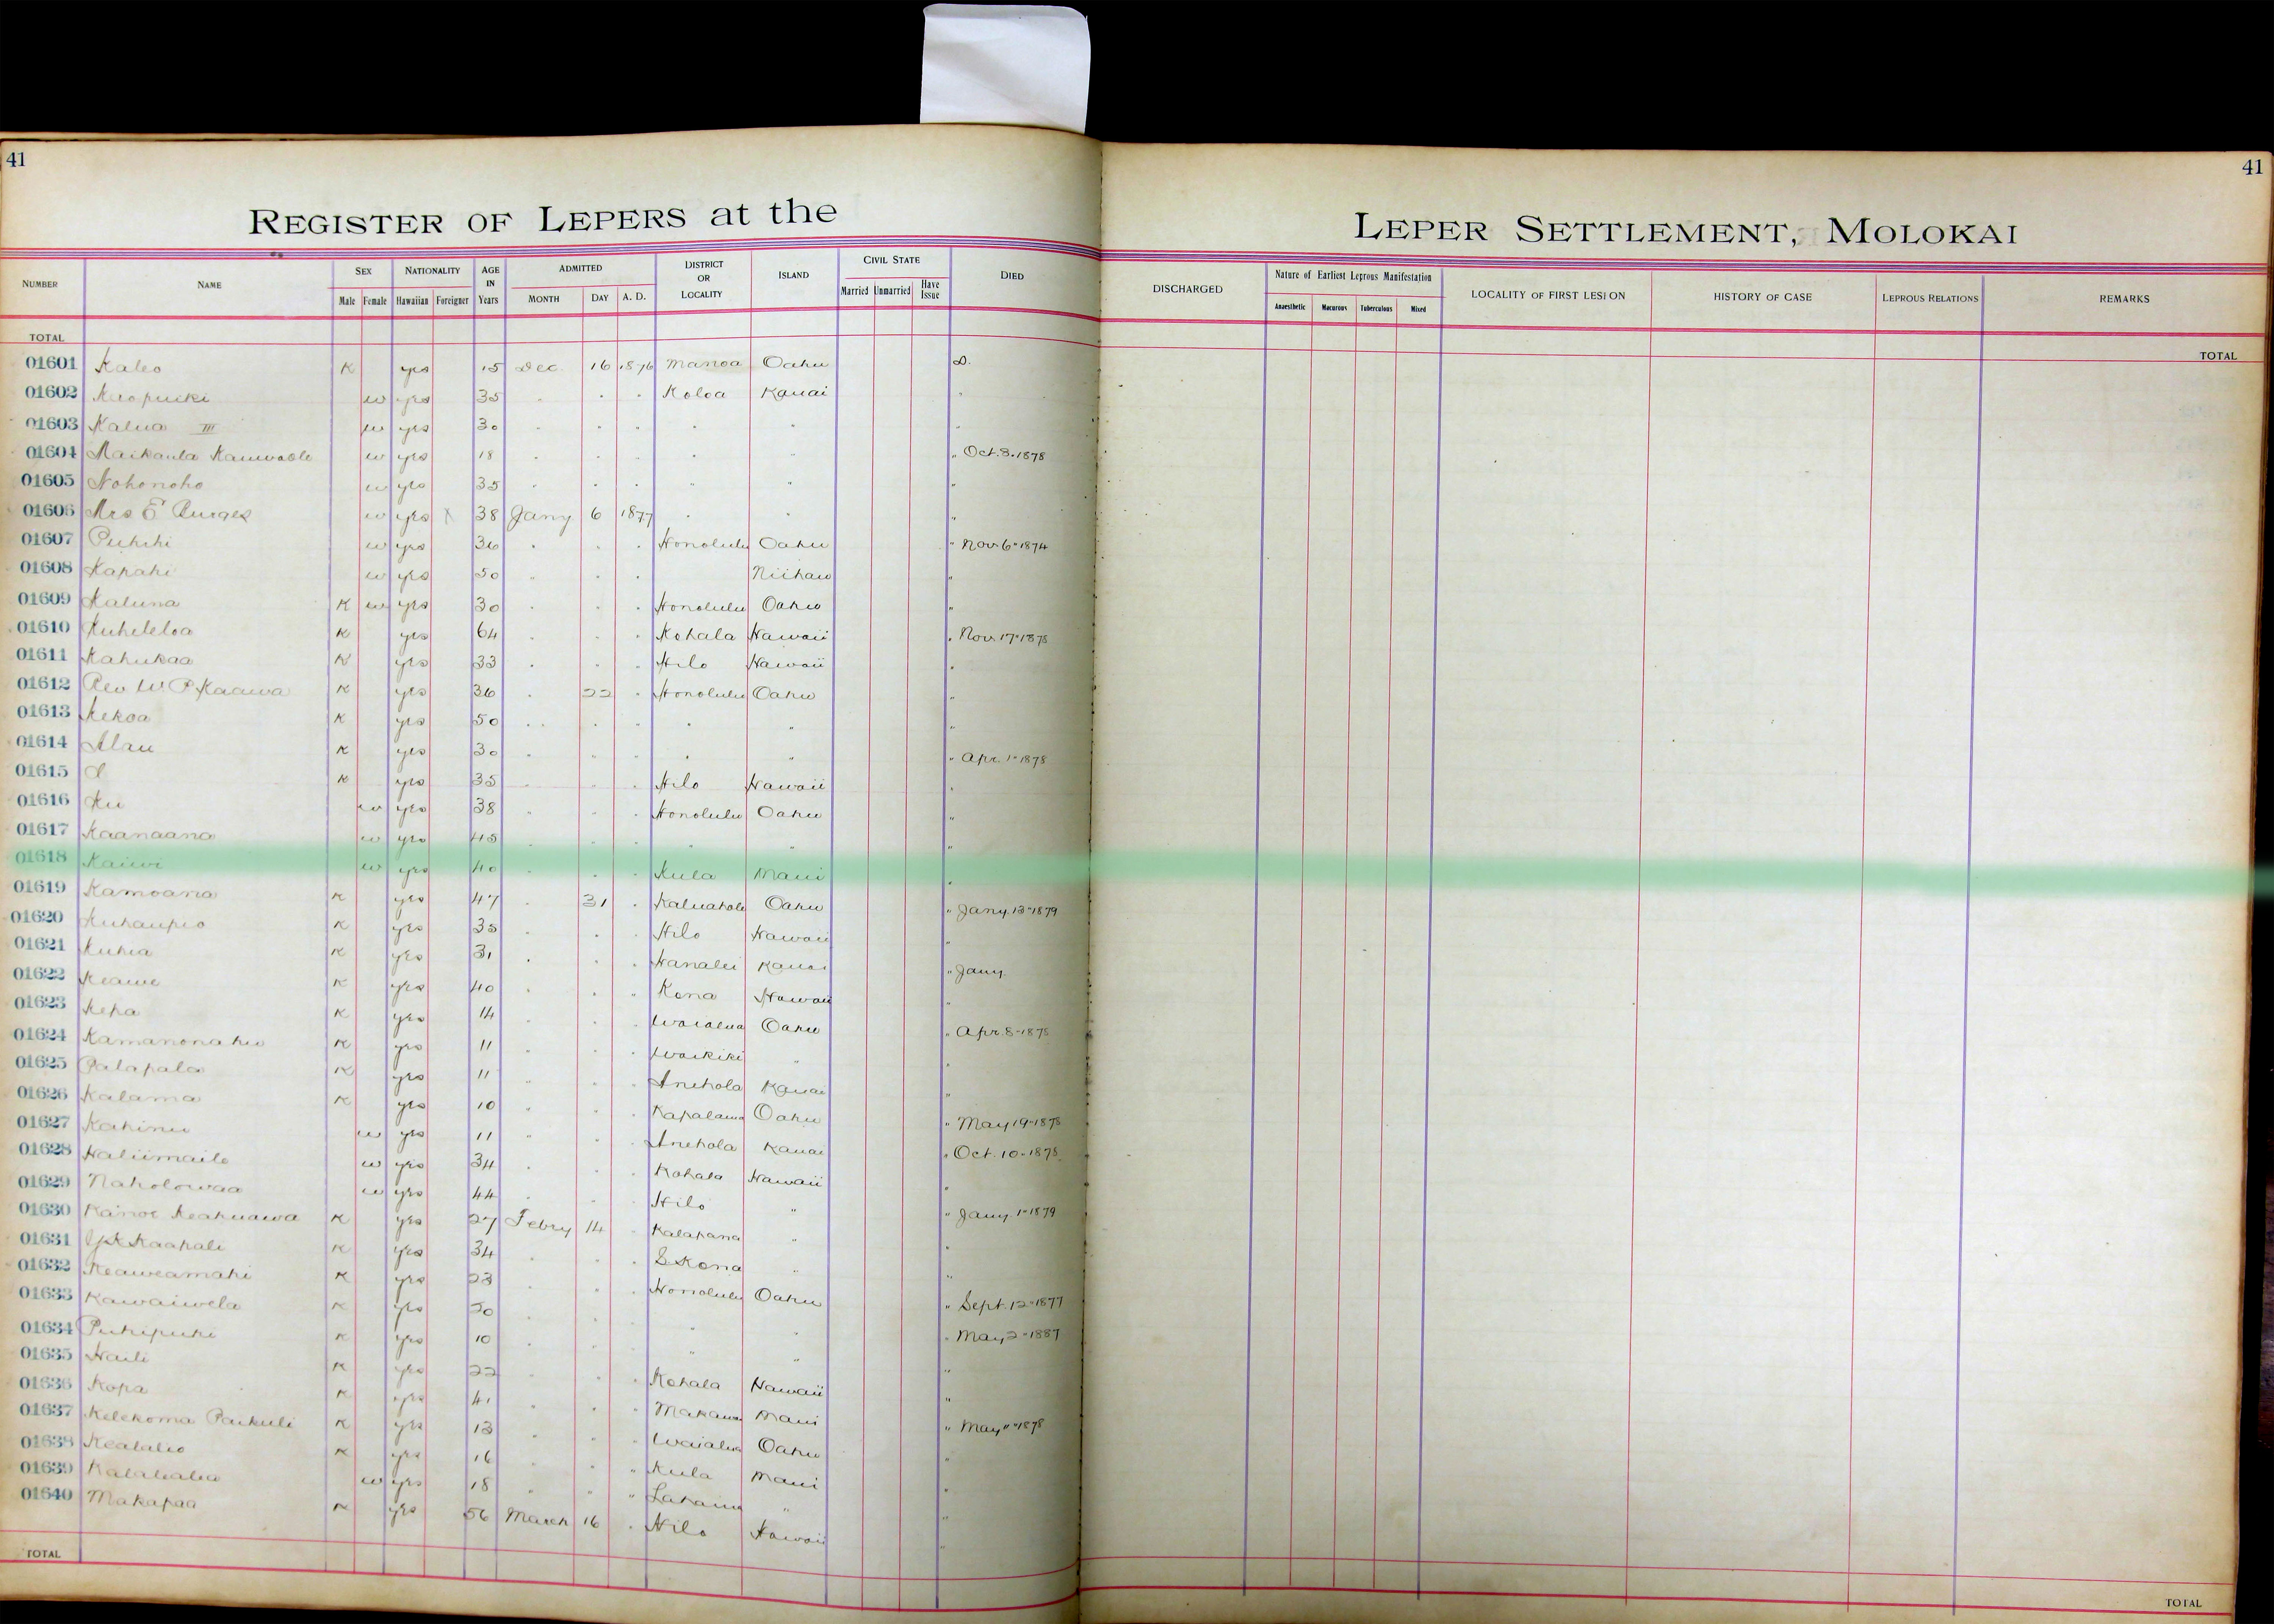 41
41
REGISTER OF LEPERS at the LEPER SETTLEMENT, MOLOKAI
NUMBER NAME SEX Male Female NATIONALITY Hawaiian Foreigner AGE IN Years ADMITTED MONTH DAY A. D. DISTRICT OR LOCALITY ISLAND CIVIL STATE Married Unmarried Have Issue DIED DISCHARGED Nature of Earliest Leprous Manifestation Anaesthetic Macurous Tuberculous Mixed LOCALITY OF FIRST LESION HISTORY OF CASE LEPROUS RELATIONS REMARKS
TOTAL TOTAL
01601 Kaleo K yes 15 Dec. 16 1876 Manoa Oahu D.
01602 w yes 35 " " " Koloa Kauai "
01603 Kalua III w yes 30 " " " " " "
01604 Maikaula w yes 18 " " " " " " Oct. 3. 1878
01605 Nohonoho w yes 35 " " " " " "
01606 Mrs E Burges w yes X 38 Jany 6 1877 " " "
01607 Puhihi w yes 36 " " " Honolulu Oahu " Nov 6" 1874
01608 Kapahi w yes 50 " " " Niihau "
01609 Kaluna K w yes 30 " " " Honolulu Oahu "
01610 Kuheleloa K yes 64 " " " Kohala Hawaii " Nov 17" 1878
01611 Kahukaa K yes 33 " " " Hilo Hawaii "
01612 Rev W. P. Kaawa K yes 36 " 22 " Honolulu Oahu "
01613 Kekoa K yes 50 " " " " " "
01614 Alau K yes 30 " " " " " " Apr. 1" 1878
01615 K yes 35 " " " Hilo Hawaii "
01616 Ku w yes 38 " " " Honolulu Oahu "
01617 Kaanaana w yes 45 " " " " " "
01618 Kaiwi w yes 40 " " " Kula Maui "
01619 Kamoana K yes 47 " 31 " Kaluahole Oahu " Jany. 13" 1879
01620 Kuhaupio K yes 35 " " " Hilo Hawaii "
01621 Kuhia K yes 31 " " " Hanalei Kauai " Jany.
01622 Keawe K yes 40 " " " Kona Hawaii "
01623 Kepa K yes 14 " " " Waialua Oahu " Apr. 8" 1878
01624 Kamanonahu K yes 11 " " " Waikiki " "
01625 Palapala K yes 11 " " " Anehola Kauai "
01626 Kalama K yes 10 " " " Kapalama Oahu " May 19" 1878
01627 Kahinu w yes 11 " " " Anehola Kauai " Oct. 10" 1878
01628 Haliimaile w yes 34 " " " Kohala Hawaii "
01629 Naholowaa w yes 44 " " " Hilo " " Jany 1" 1879
01630 Kanoe Keakuawa K yes 27 Febry 14 " Kalapana " "
01631 Kaapale K yes 34 " " " S Kona " "
01632 Keaweamahi K yes 23 " " " Honolulu Oahu " Sept. 12" 1877
01633 Kawaiwela K yes 20 " " " " " " May 2" 1887
01634 Puhipuhi K yes 10 " " " " " "
01635 Haili K yes 22 " " " Kohala Hawaii "
01636 Kopa K yes 41 " " " Makawao Maui " May 11" 1878
01637 Kelekoma Paikuli K yes 13 " " " Waialua Oahu "
01638 Kealalio K yes 16 " " " Kula Maui "
01639 w yes 18 " " " Lahaina " "
01640 Makapaa K yes 56 March 16 " Hilo Hawaii "
TOTAL TOTAL